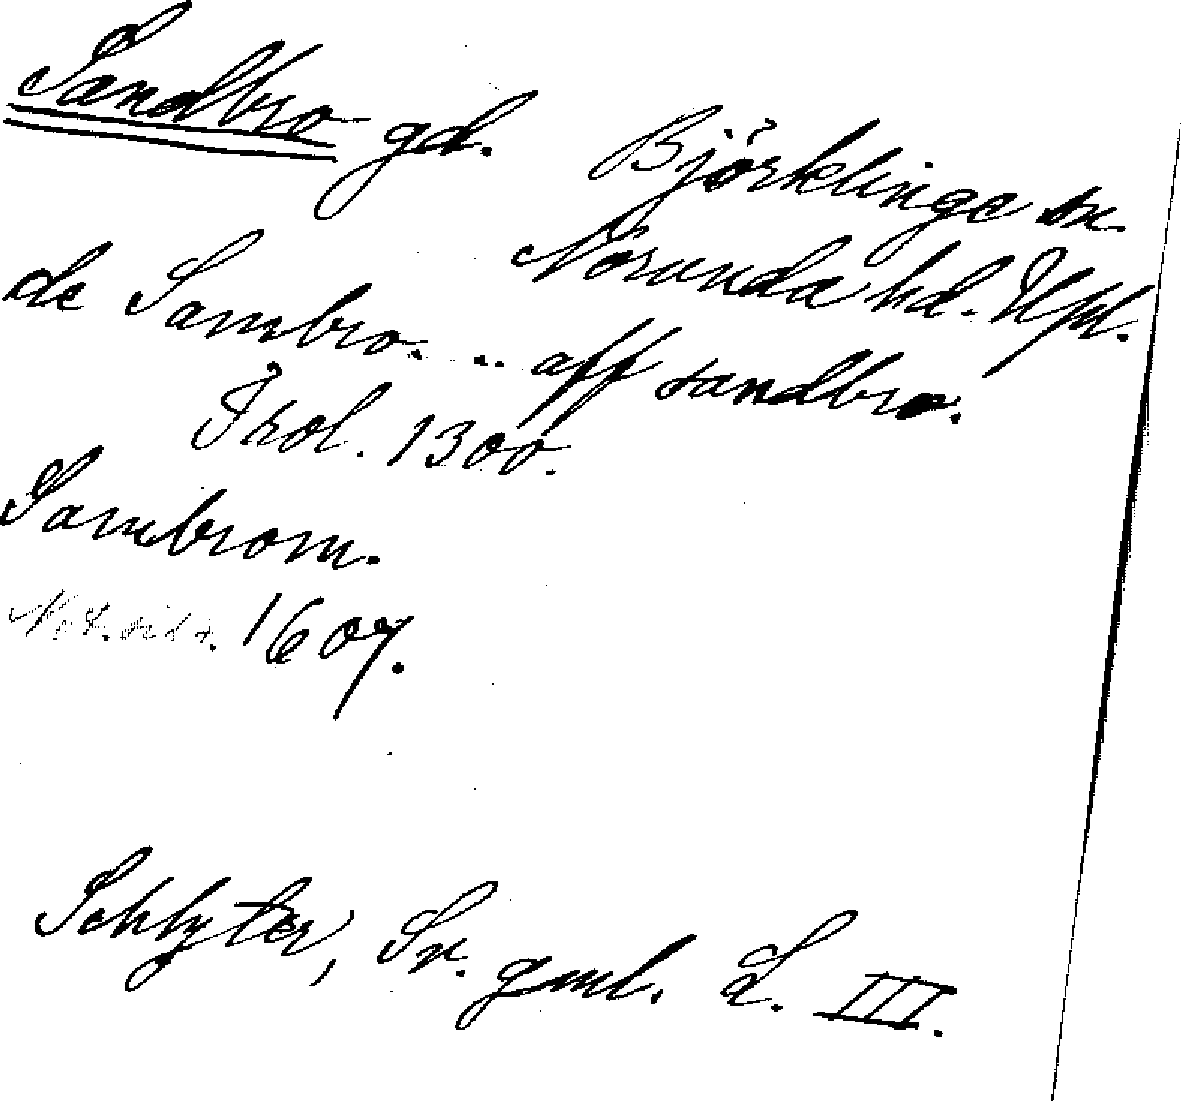 Sandbro gd. Björklinge sn.
Norunda hd. Upl.
de Sambro. ... aff sandbro.
1300.
Sambrom.
1607.
Schlyter, Sv. gml. L. III.